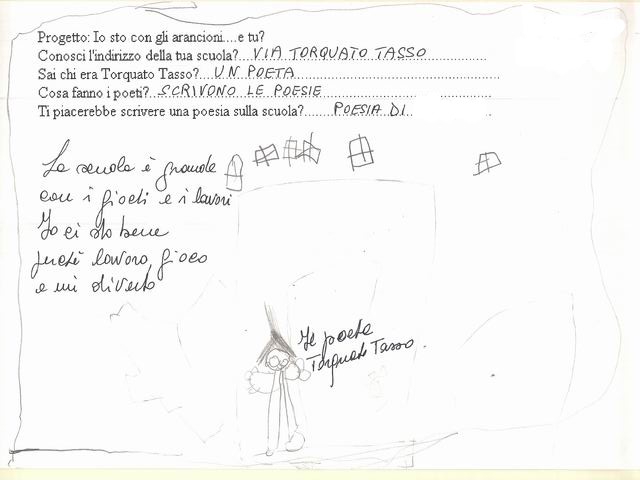 Progetto: Io sto con gli arancioni....e tu?
Conosci l'indirizzo della tua scuola?...VIA TORQUATO TASSO
Sai chi era Torquato Tasso?...UN POETA
Cosa fanno i poeti?...SCRIVONO LE POESIE
Ti piacerebbe scrivere una poesia sulla scuola? POESIA DI
La scuola è grande
con i giochi e i lavori
Io ci sto bene
perchè lavoro, gioco
e mi diverto
Il poeta
Torquato Tasso.